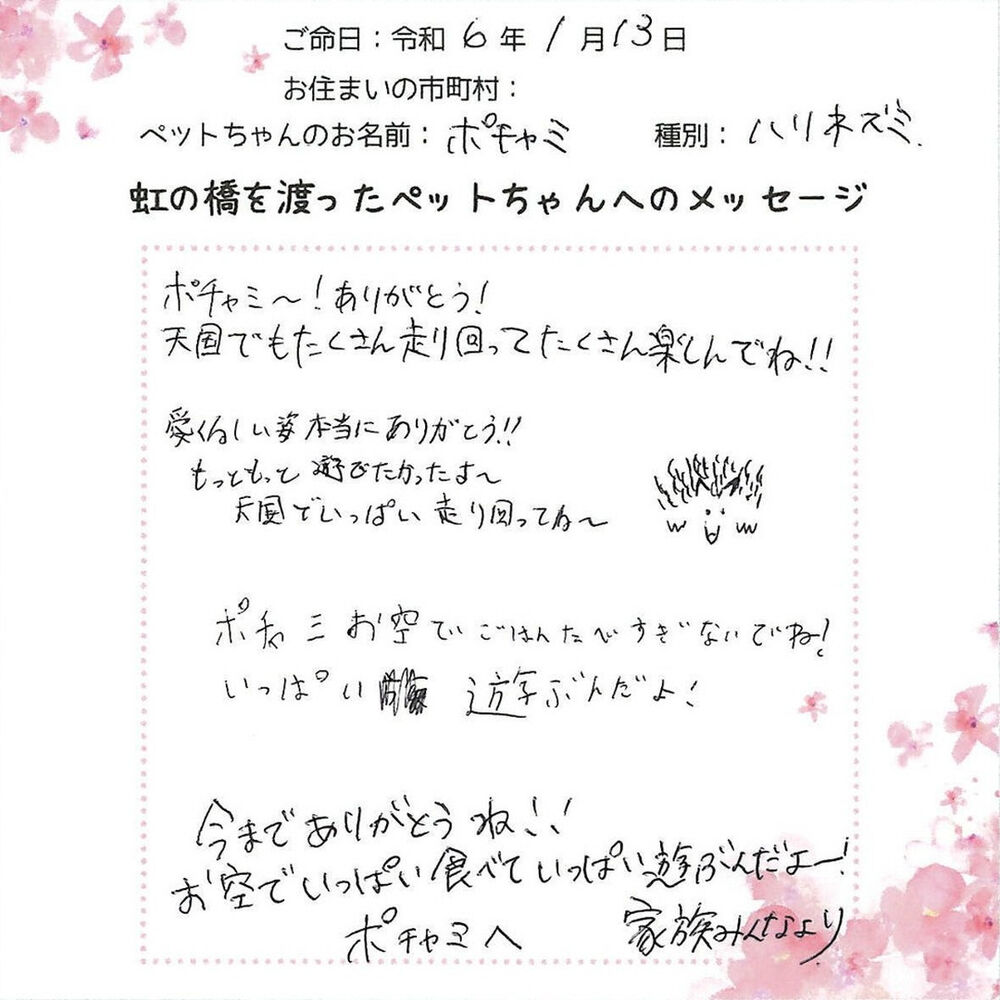 ご命日：令和 6 年 1 月 13 日
お住まいの市町村：
ペットちゃんのお名前：ポチャミ 種別：ハリネズミ
虹の橋を渡ったペットちゃんへのメッセージ
ポチャミ〜！ありがとう！
天国でもたくさん走り回ってたくさん楽しんでね!!
愛くるしい姿本当にありがとう!!
もっともっと遊びたかったよ〜
天国でいっぱい走り回ってね〜
ポチャミお空でごはんたべすぎないでね!
いっぱい 遊ぶんだよ!
今までありがとうね!!
お空でいっぱい食べていっぱい遊ぶんだよー!
ポチャミへ 家族みんなより